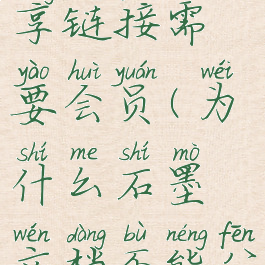 享链接需
yào huì yuán wéi
要会员(为
shí me shí mò
什么石墨
wén dàng bù néng fēn
文档不能分